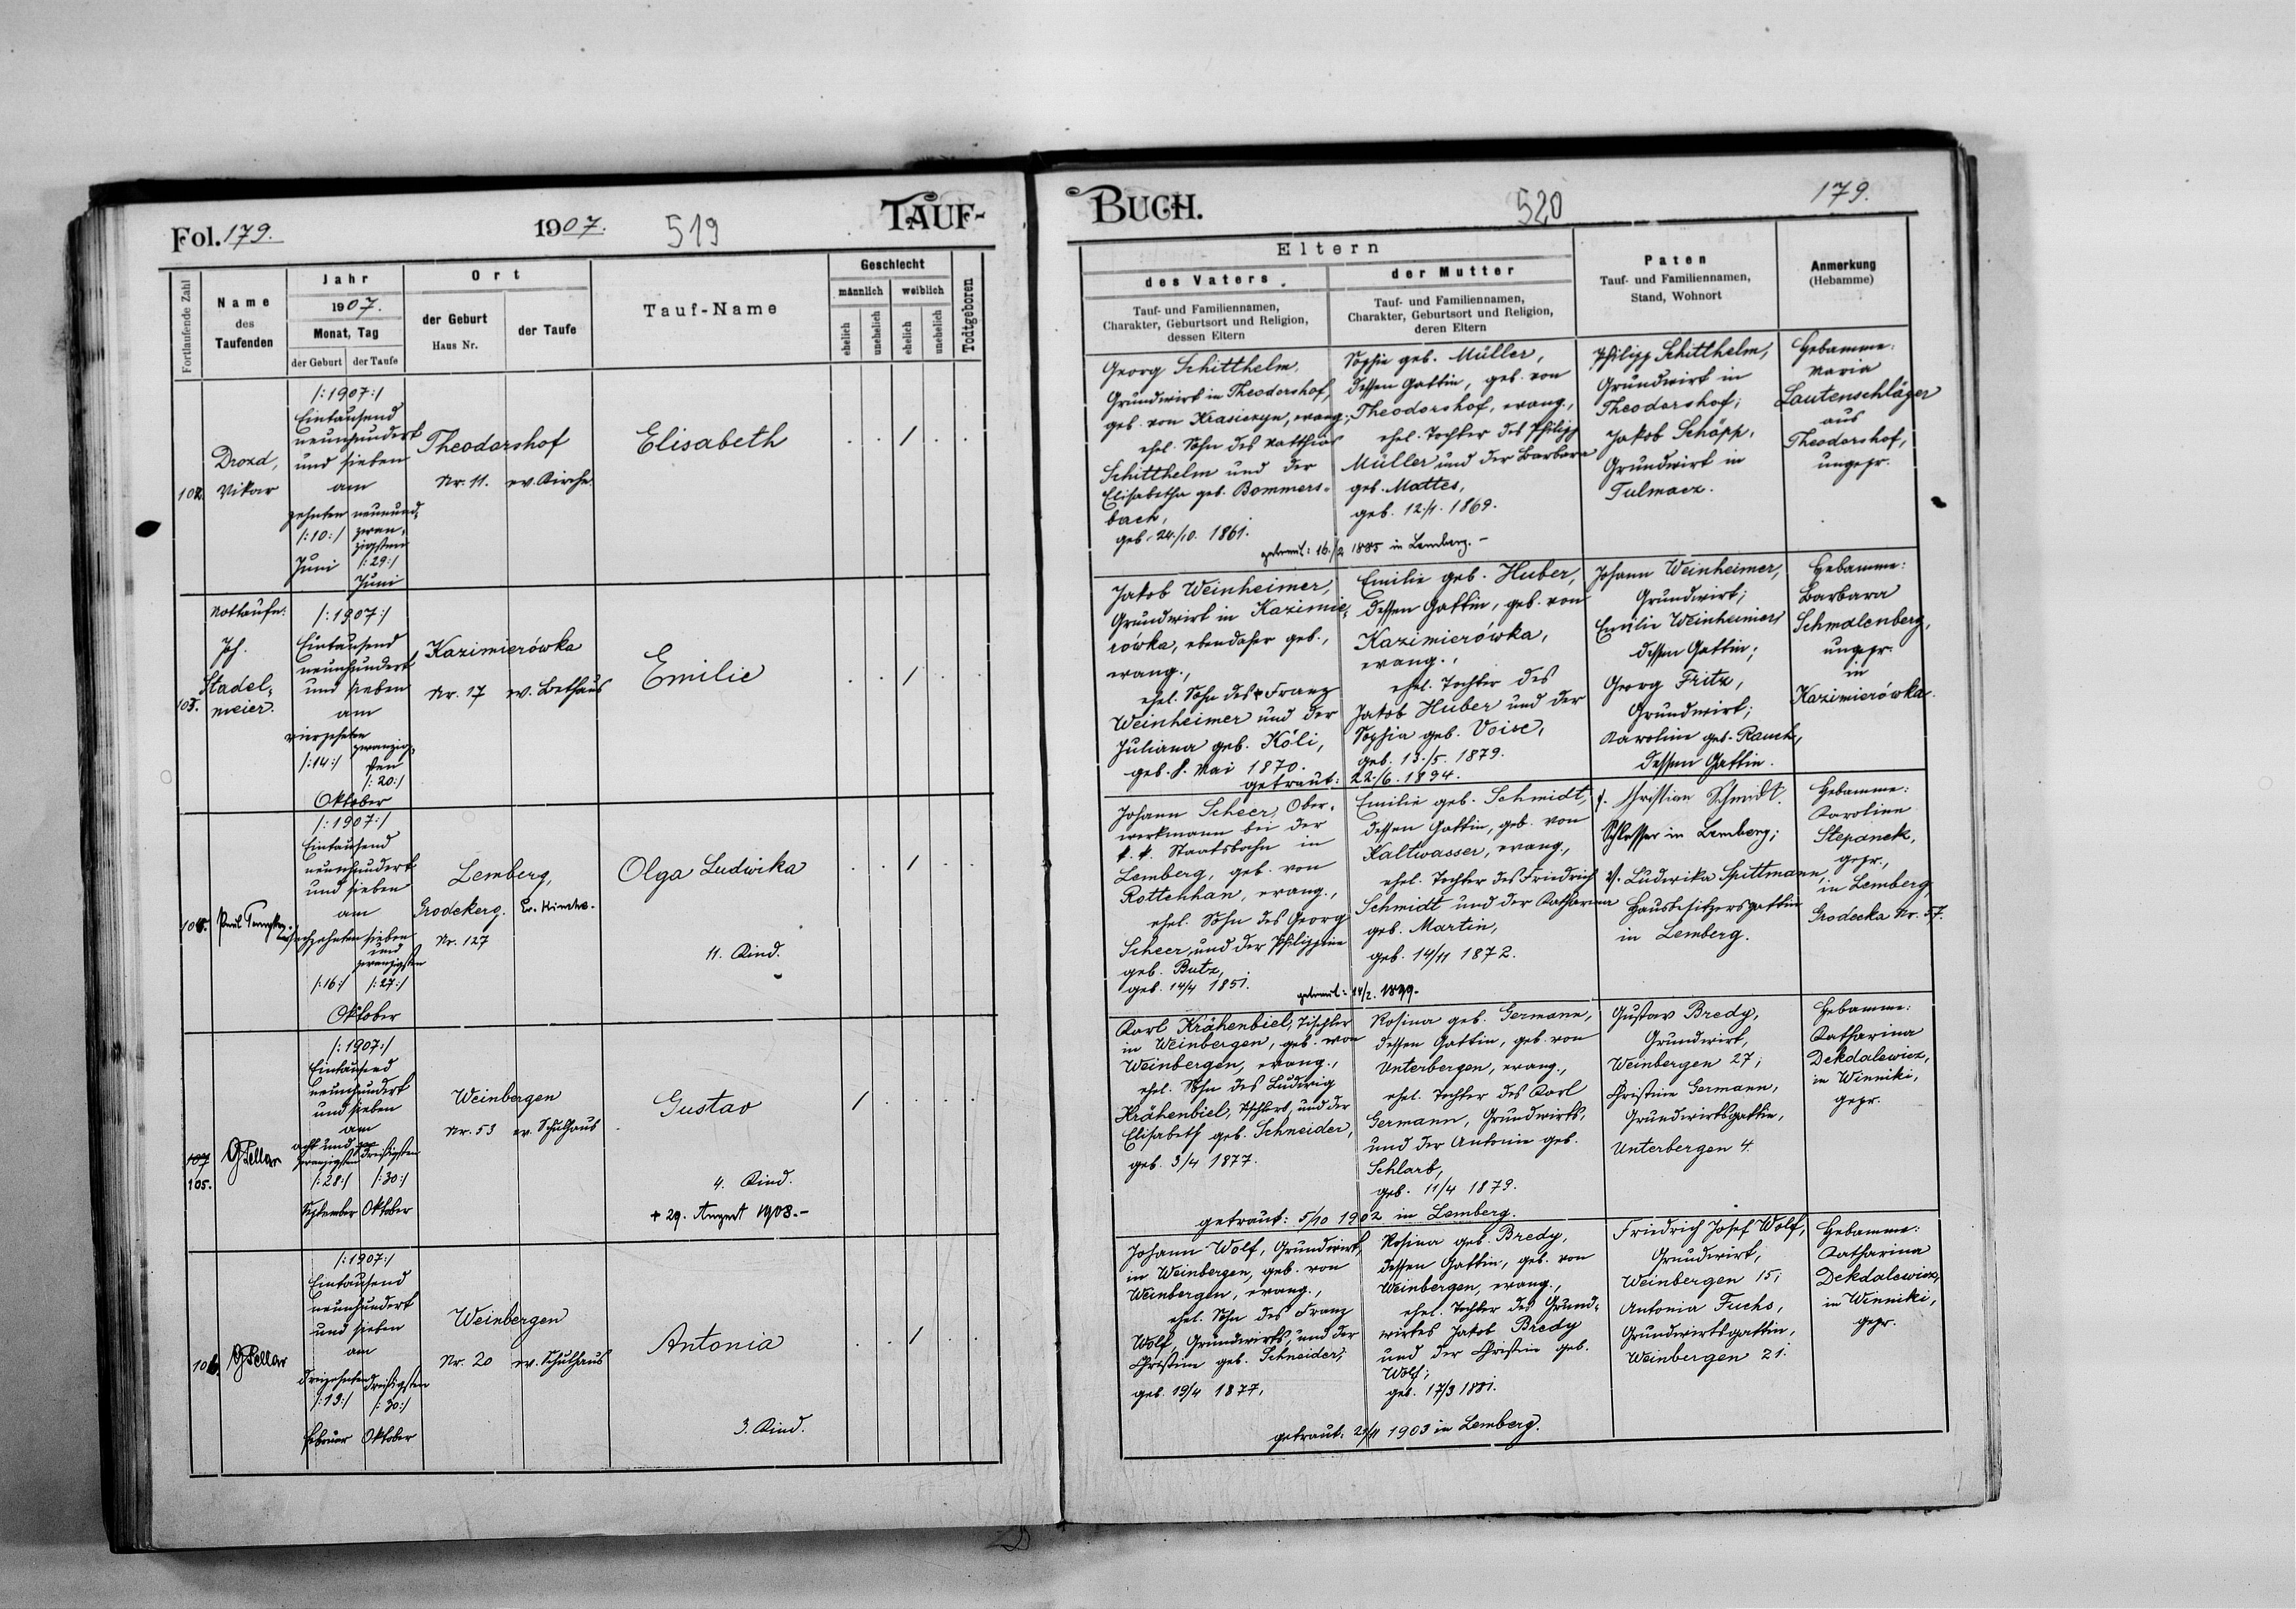 Fol. 179.
1907.
519
TAUF-
Fortlaufende Zahl
Name
des
Taufenden
Jahr
1907.
Monat, Tag
der Geburt
der Taufe
Ort
der Geburt
Haus Nr.
der Taufe
Tauf-Name
Geschlecht
männlich
weiblich
ehelich
unehelich
ehelich
unehelich
Todtgeboren
102.
Drozd,
Vikar
/:1907:/
Eintausend
neunhundert
und sieben
am
zehnten
/:10:/
Juni
neunund-
zwan-
zigsten
/:29:/
Juni
Theodorshof
Nr. 11.
ev. Kirche.
Elisabeth
103.
Nottaufe:
Joh.
Stadel-
meier.
/:1907:/
Eintausend
neunhundert
und sieben
am
vierzehnten
/:14:/
zwanzig-
sten
/:20:/
Oktober
Kazimierówka
Nr. 17
ev. Bethaus
Emilie
104.
/:1907:/
Eintausend
neunhundert
und sieben
am
sechzehnten
/:16:/
sieben
und
zwanzigsten
/:27:/
Oktober
Lemberg,
Grodekerg.
Nr. 127
Ev. Kirche.
Olga Ludwika
11. Kind.
107
105.
/:1907:/
Eintausend
neunhundert
und sieben
am
acht und
zwanzigsten
/:28:/
September
dreißigsten
/:30:/
Oktober
Weinbergen
Nr. 53
ev. Schulhaus
Gustav
4. Kind.
+ 29. August 1908.-
106.
/:1907:/
Eintausend
neunhundert
und sieben
am
dreizehnten
/:13:/
Februar
dreißigsten
/:30:/
Oktober
Weinbergen
Nr. 20
ev. Schulhaus
Antonia
3. Kind.
BUCH.
520
179.
Eltern
des Vaters
Tauf- und Familiennamen,
Charakter, Geburtsort und Religion,
dessen Eltern
der Mutter
Tauf- und Familiennamen,
Charakter, Geburtsort und Religion,
deren Eltern
Paten
Tauf- und Familiennamen,
Stand, Wohnort
Anmerkung
(Hebamme)
Georg Schitthelm,
Grundwirt in Theodorshof,
geb. von Krasiczyn, evang.,
ehel. Sohn des Matthias
Schitthelm und der
Elisabetha geb. Bommers-
bach,
geb. 24./10. 1861.
Sophie geb. Müller,
dessen Gattin, geb. von
Theodorshof, evang.,
ehel. Tochter des Philipp
Müller und der Barbara
geb. Mattes,
geb. 12./1. 1869.
getraut: 16./2 1885 in Lemberg.-
Philipp Schitthelm,
Grundwirt in
Theodorshof;
Jakob Schäpp,
Grundwirt in
Tulmacz.
Hebamme:
Maria
Lautenschläger
aus
Theodorshof,
ungepr.
Jakob Weinheimer,
Grundwirt in Kazimie-
rówka, ebendaher geb.,
evang.,
ehel. Sohn des Franz
Weinheimer und der
Juliana geb. Köli,
geb. 8. Mai 1870.
Emilie geb. Huber,
dessen Gattin, geb. von
Kazimierówka,
evang.,
ehel. Tochter des
Jakob Huber und der
Sophia geb. Voise,
geb. 13./5. 1879.
getraut: 22./6. 1894.
Johann Weinheimer,
Grundwirt;
Emilie Weinheimer
dessen Gattin;
Georg Fritz,
Grundwirt;
Karoline geb. Rauch,
dessen Gattin.
Hebamme:
Barbara
Schmalenberg,
ungepr.
in
Kazimierówka.
Johann Scheer, Ober-
werkmann bei der
k. k. Staatsbahn in
Lemberg, geb. von
Rottenhan, evang.,
ehel. Sohn des Georg
Scheer, und der Philippine
geb. Butz,
geb. 14/4 1851.
Emilie geb. Schmidt,
dessen Gattin, geb. von
Kaltwasser, evang.,
ehel. Tochter des Friedrich
Schmidt und der Katharina
geb. Martin,
geb. 14/11 1872.
getraut: 14/2. 1889.
1. Christian Schmidt.
Schlosser in Lemberg;
2. Ludwika Spittmann,
Hausbesitzersgattin
in Lemberg.
Hebamme:
Karoline
Stepanek,
gepr.,
in Lemberg,
Grodecka Nr. 57.
Karl Krähenbiel, Tischler
in Weinbergen, geb. von
Weinbergen, evang.,
ehel. Sohn des Ludwig
Krähenbiel, Tischlers, und der
Elisabeth geb. Schneider,
geb. 3/4 1877.
Rosina geb. Germann,
dessen Gattin, geb. von
Unterbergen, evang.,
ehel. Tochter des Karl
Germann, Grundwirts,
und der Antonie geb.
Schlarb,
geb. 11/4 1879.
getraut: 5/10 1902 in Lemberg.
Gustav Bredy,
Grundwirt,
Weinbergen 27;
Christine Germann,
Grundwirtsgattin,
Unterbergen 4.
Hebamme:
Katharina
Dekdalewicz,
in Winniki,
gepr.
Johann Wolf, Grundwirt,
in Weinbergen, geb. von
Weinbergen, evang.,
ehel. Sohn des Franz
Wolf, Grundwirts, und der
Christine geb. Schneider;
geb. 19/4 1877,
Rosina geb. Bredy,
dessen Gattin, geb. von
Weinbergen, evang.,
ehel. Tochter des Grund-
wirtes Jakob Bredy
und der Christine geb.
Wolf;
geb. 17/3 1881.
getraut: 21/11 1903 in Lemberg.
Friedrich Josef Wolf,
Grundwirt,
Weinbergen 15;
Antonia Fuchs,
Grundwirtsgattin,
Weinbergen 21.
Hebamme:
Katharina
Dekdalewicz,
in Winniki,
gepr.